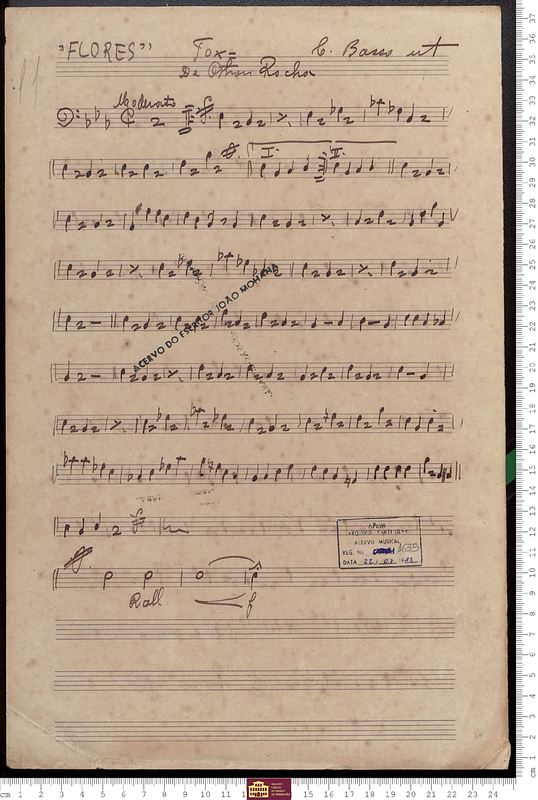 "FLORES" Fox= C. Basso ut
De Othon Rocha
11
Moderato
I. II.
ACERVO DO ESCRITOR JOÃO MOHANA
APEM
ACERVO MUSICAL
REG. No 1635
DATA 22/07/
Rall f